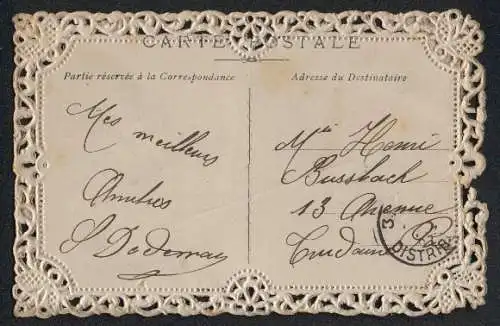 CARTE POSTALE
Partie réservée à la Correspondance
Adresse du Destinataire
Mes meilleurs
Amitiés
Mr Henri
Bussbach
13 Avenue
Trudaine
DISTRIB
3